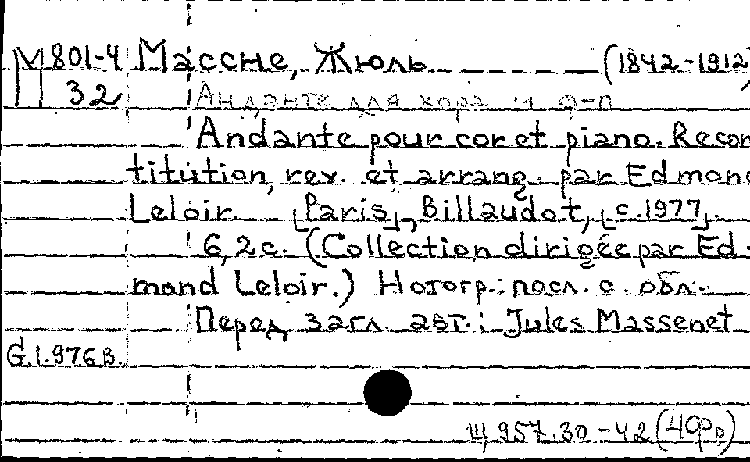 М801-4 Массне, Жюль (1842-1912
32 Анданте для хора и ф-п
Andante pour cor et piano. Recon
titution, rev. et arrang. par Edmond
Leloir. [Paris], Billaudot, [c.1977].
6,2 с. (Collection dirigée par Ed-
mond Leloir.) Нотогр.: посл. с. обл.
Перед загл. авт.: Jules Massenet
G.1.976 B.
Ц 957.30-42 (4Фр.)